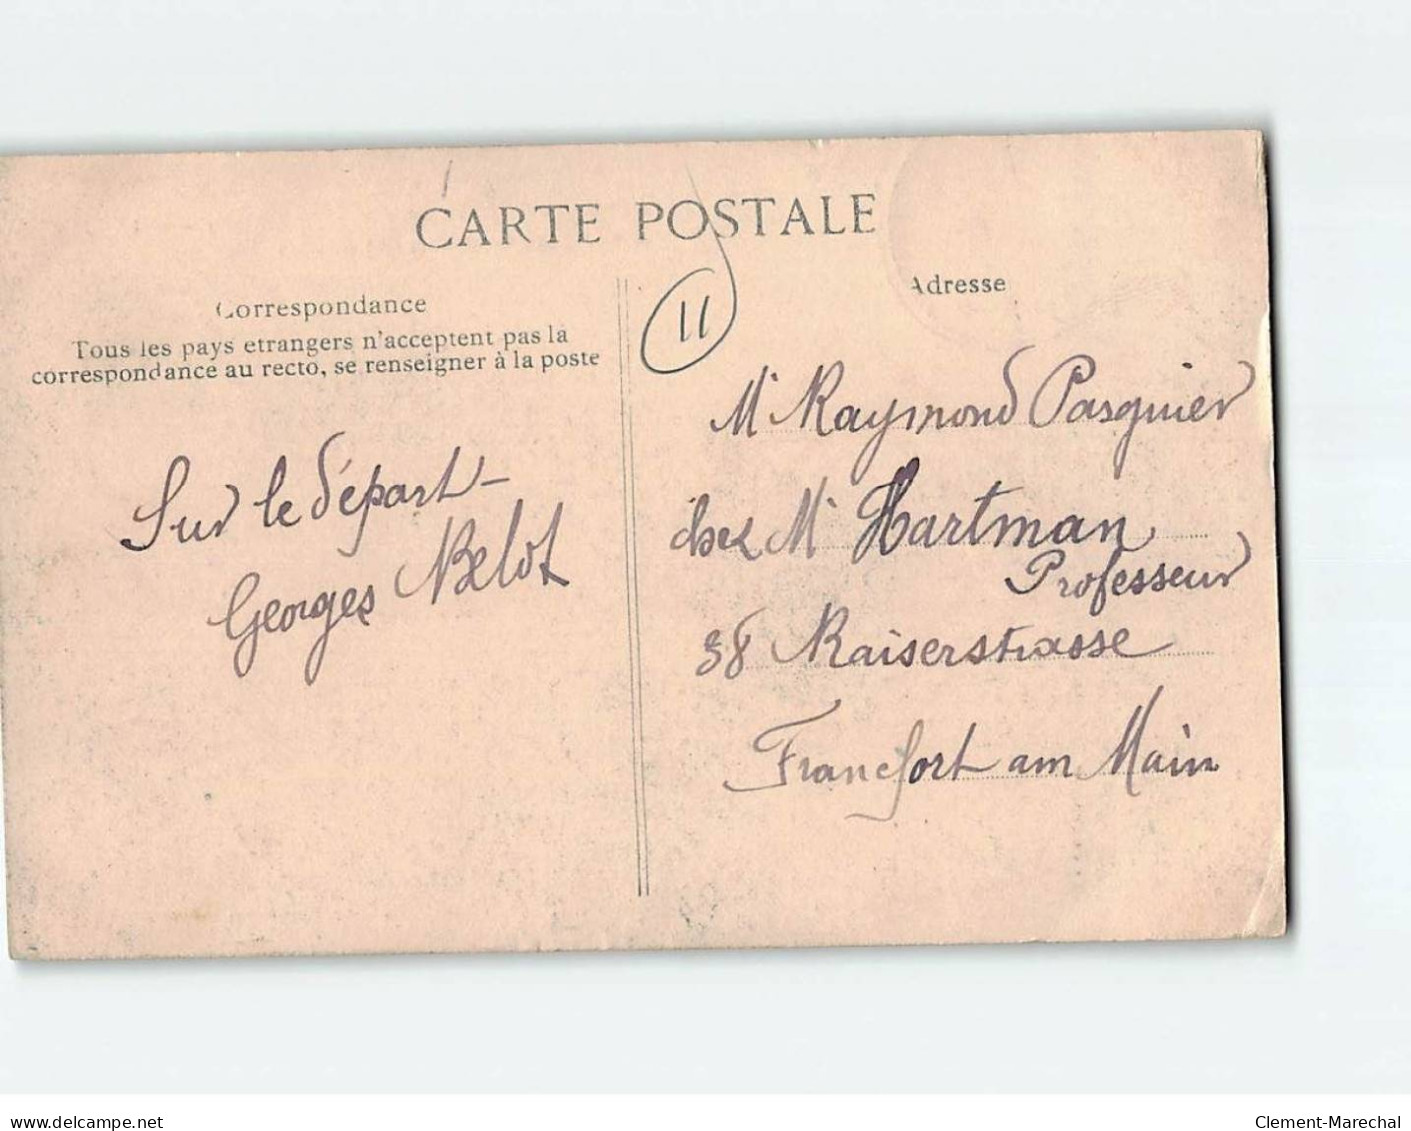 CARTE POSTALE
Correspondance
Tous les pays etrangers n'acceptent pas la
correspondance au recto, se renseigner à la poste
Sur le départ -
Georges Belot
Adresse
11
Mr Raymond Pasquier
chez Mr Hartman
Professeur
38 Kaiserstrasse
Francfort am Main
delcampe.net
Clement-Marechal